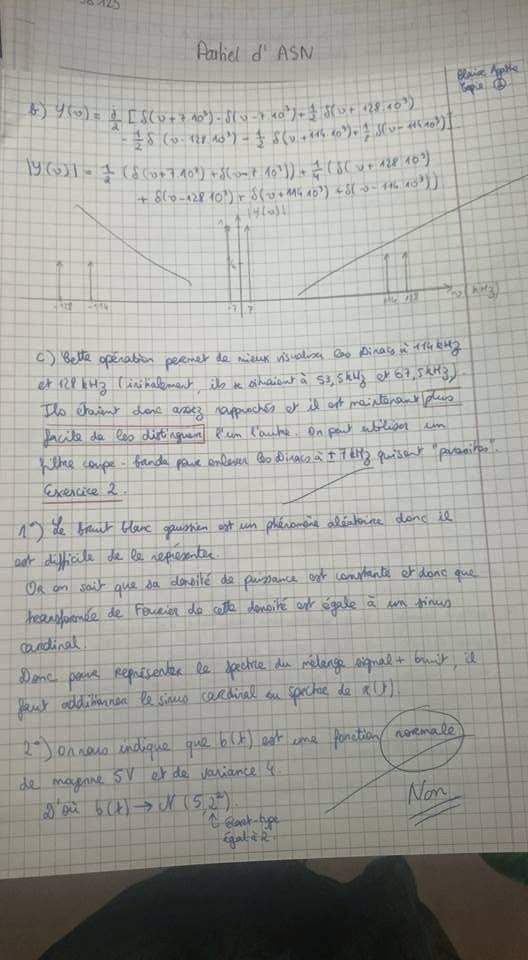 Partiel d'ASN
Copie ②
b) Y(υ) = j/2 [δ(υ+7 10³) - δ(υ-7 10³) + 1/2 δ(υ+128 10³)
- 1/2 δ(υ-128 10³) - 1/2 δ(υ+114 10³) + 1/2 δ(υ-114 10³)]
|Y(υ)| = 1/2 (δ(υ+7 10³) + δ(υ-7 10³)) + 1/4 (δ(υ+128 10³)
+ δ(υ-128 10³) + δ(υ+114 10³) + δ(υ-114 10³))
|Y(υ)|
-128 -114 -7 7 114 128 υ (kHz)
c) Cette opération permet de mieux visualiser les Diracs à 114 kHz
et 128 kHz (initialement, ils se situaient à 53,5 kHz et 67,5 kHz).
Ils étaient donc assez rapprochés et il est maintenant plus
facile de les distinguer l'un l'autre. On peut utiliser un
filtre coupe-bande pour enlever les Diracs à ±7 kHz qui sont "parasites".
Exercice 2.
1°) Le bruit blanc gaussien est un phénomène aléatoire donc il
est difficile de le représenter.
Or on sait que sa densité de puissance est constante et donc que
transformée de Fourier de cette densité est égale à un sinus
cardinal.
Donc pour représenter le spectre du mélange signal + bruit, il
faut additionner le sinus cardinal au spectre de x(t).
2°) On nous indique que b(t) est une fonction normale
de moyenne 5V et de variance 4.
D'où b(t) → N(5, 2²)
↑ écart-type
égal à 2.
Non